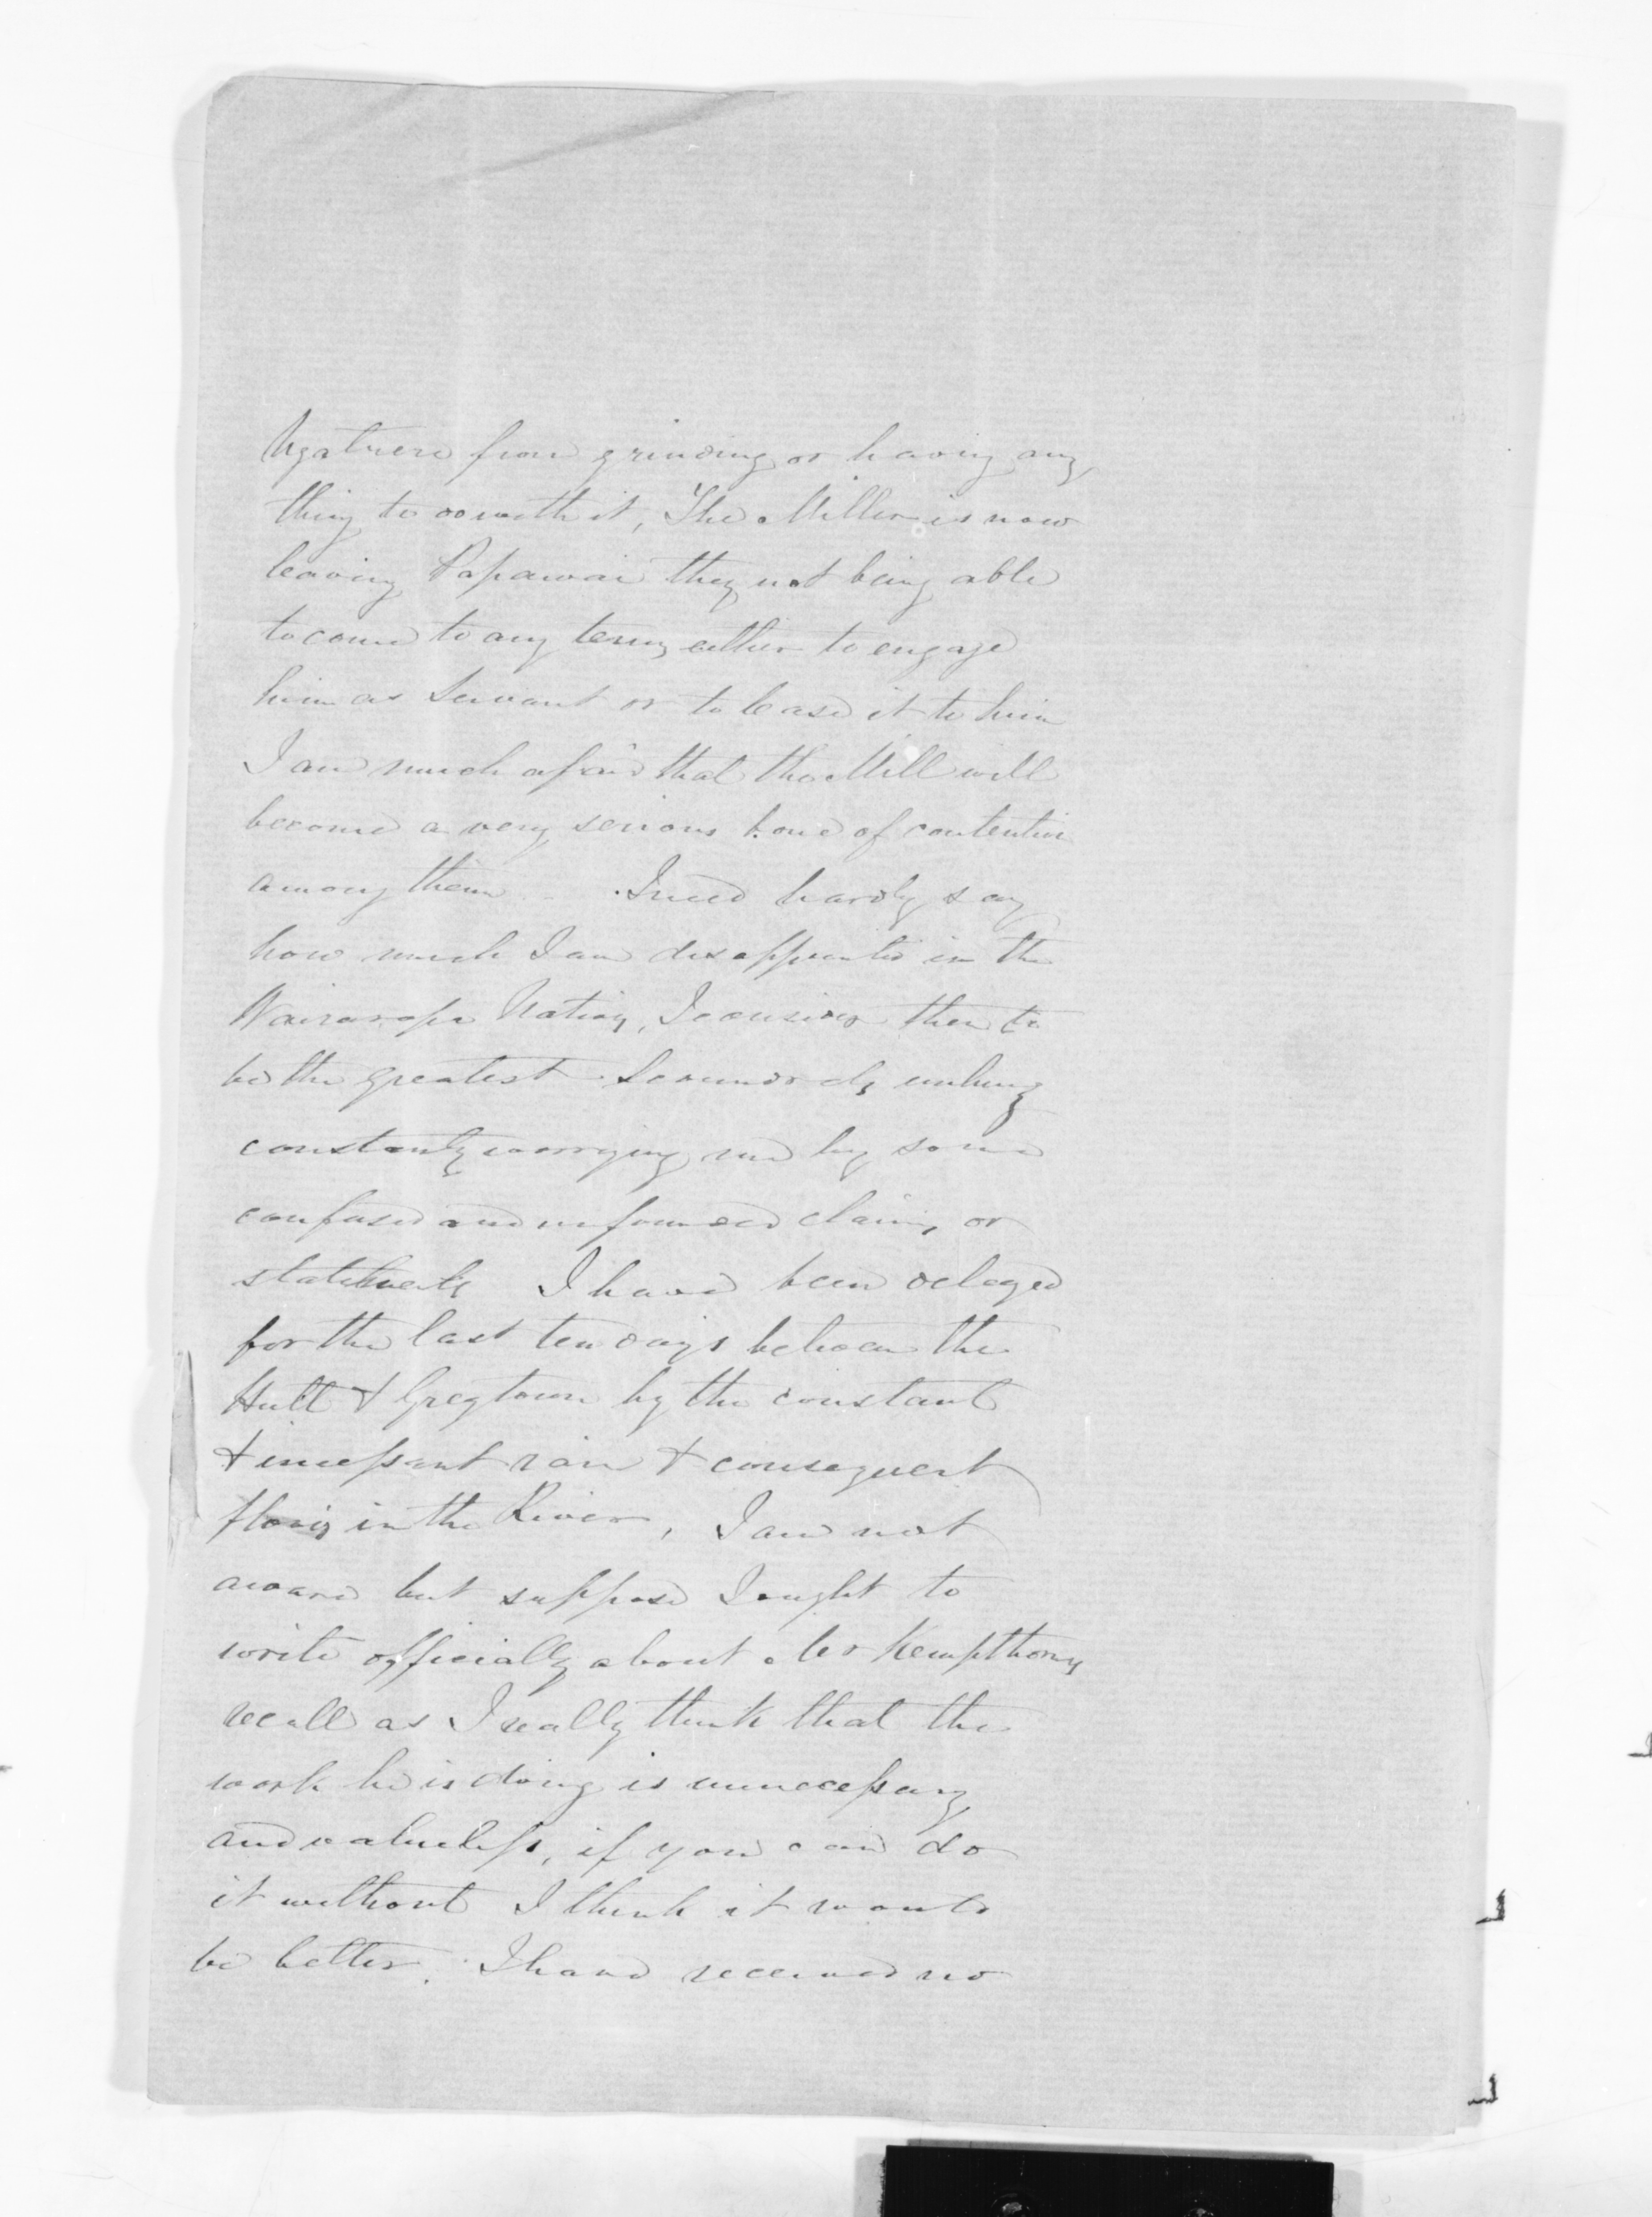 Ngatuere from grinding or having any
thing to do with it, The Miller is now
leaving Papawai they not being able
to come to any terms either to engage
him as Servant or to lease it to him
I am much afraid that the Mill will
become a very serious bone of contention
among them - I need hardly say
how much I am disappointed in the
Wairarapa Natives, I consider them to
be the greatest Scoundrels
constantly worrying me by some
confused and unfounded claims or
statements I have been delayed
for the last ten days between the
Hutt & Greytown by the constant
& incessant rain & consequent
floods in the River, I am not
aware but suppose I ought to
write officially about Mr Kempthornes
recall as I really think that the
work he is doing is unnecessary
and valueless, if you can do
it without I think it would
be better. I have received no